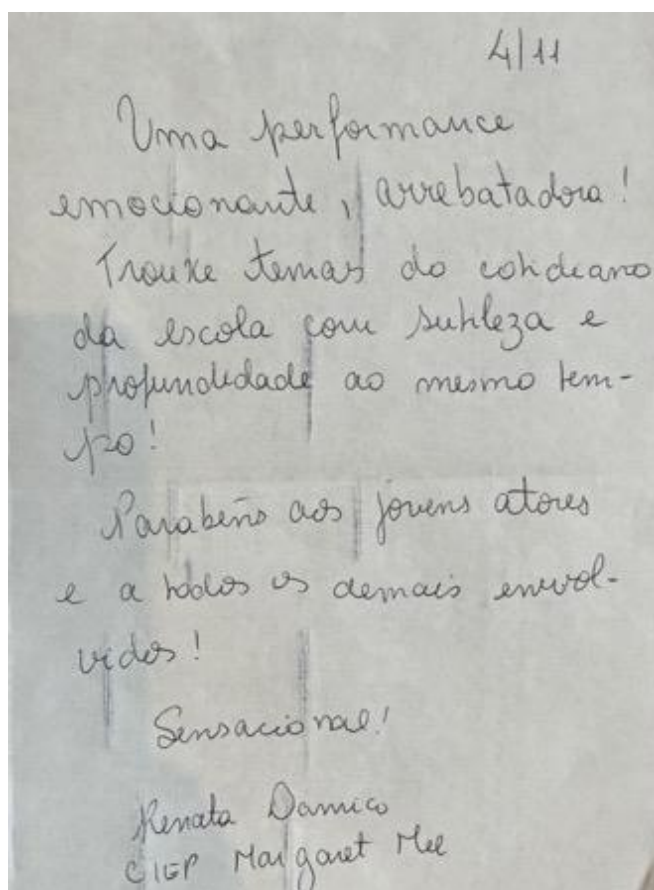 4/11
Uma performance
emocionante, arrebatadora!
Trouxe temas do cotidiano
da escola com sutileza e
profundidade ao mesmo tem-
po!
Parabéns aos jovens atores
e a todos os demais envol-
vidos!
Sensacional!
Renata Damico
CIEP Margaret Mee